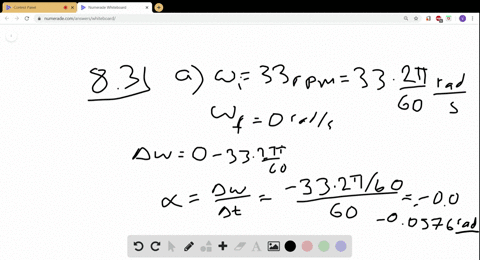 Content Panel
Numerade Whiteboard
numerade.com/answers/whiteboard/
8.31 a) ω_i = 33rpm = 33 · 2π/60 rad/s
ω_f = 0 rad/s
Δω = 0 - 33 · 2π/60
α = Δω/Δt = -33 · 2π/60 / 60 = -0.0
-0.0576 rad
A